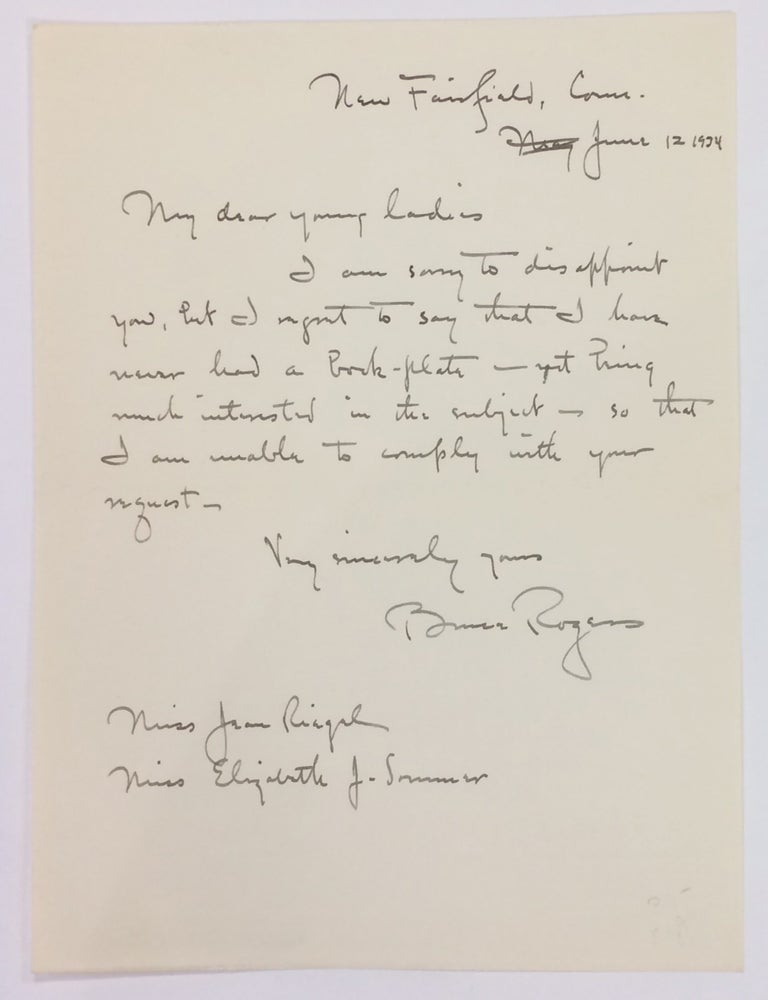 New Fairfield, Conn.
May June 12 1934
My dear young ladies
I am sorry to disappoint
you, but I regret to say that I have
never had a book-plate — yet being
much interested in the subject — so that
I am unable to comply with your
request —
Very sincerely yours
Bruce Rogers
Miss Jean Riegel
Miss Elizabeth J. Sommer